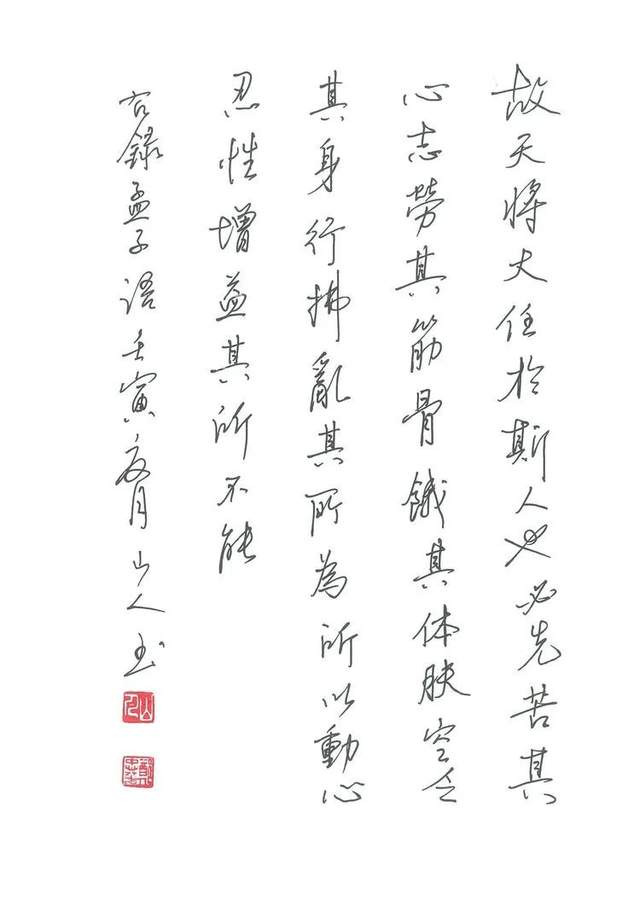 故天将大任於斯人也必先苦其
心志勞其筋骨餓其体肤空乏
其身行拂亂其所為所以動心
忍性增益其所不能
右録孟子语壬寅夏月山人书
山人